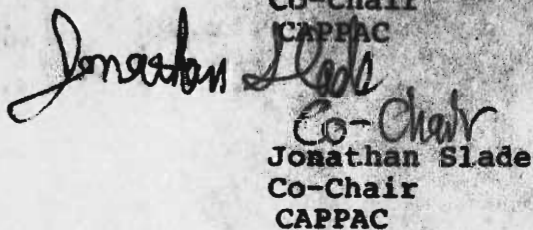 Co-Chair
CAPPAC
Jonathan Slade
Co-Chair
Jonathan Slade
Co-Chair
CAPPAC